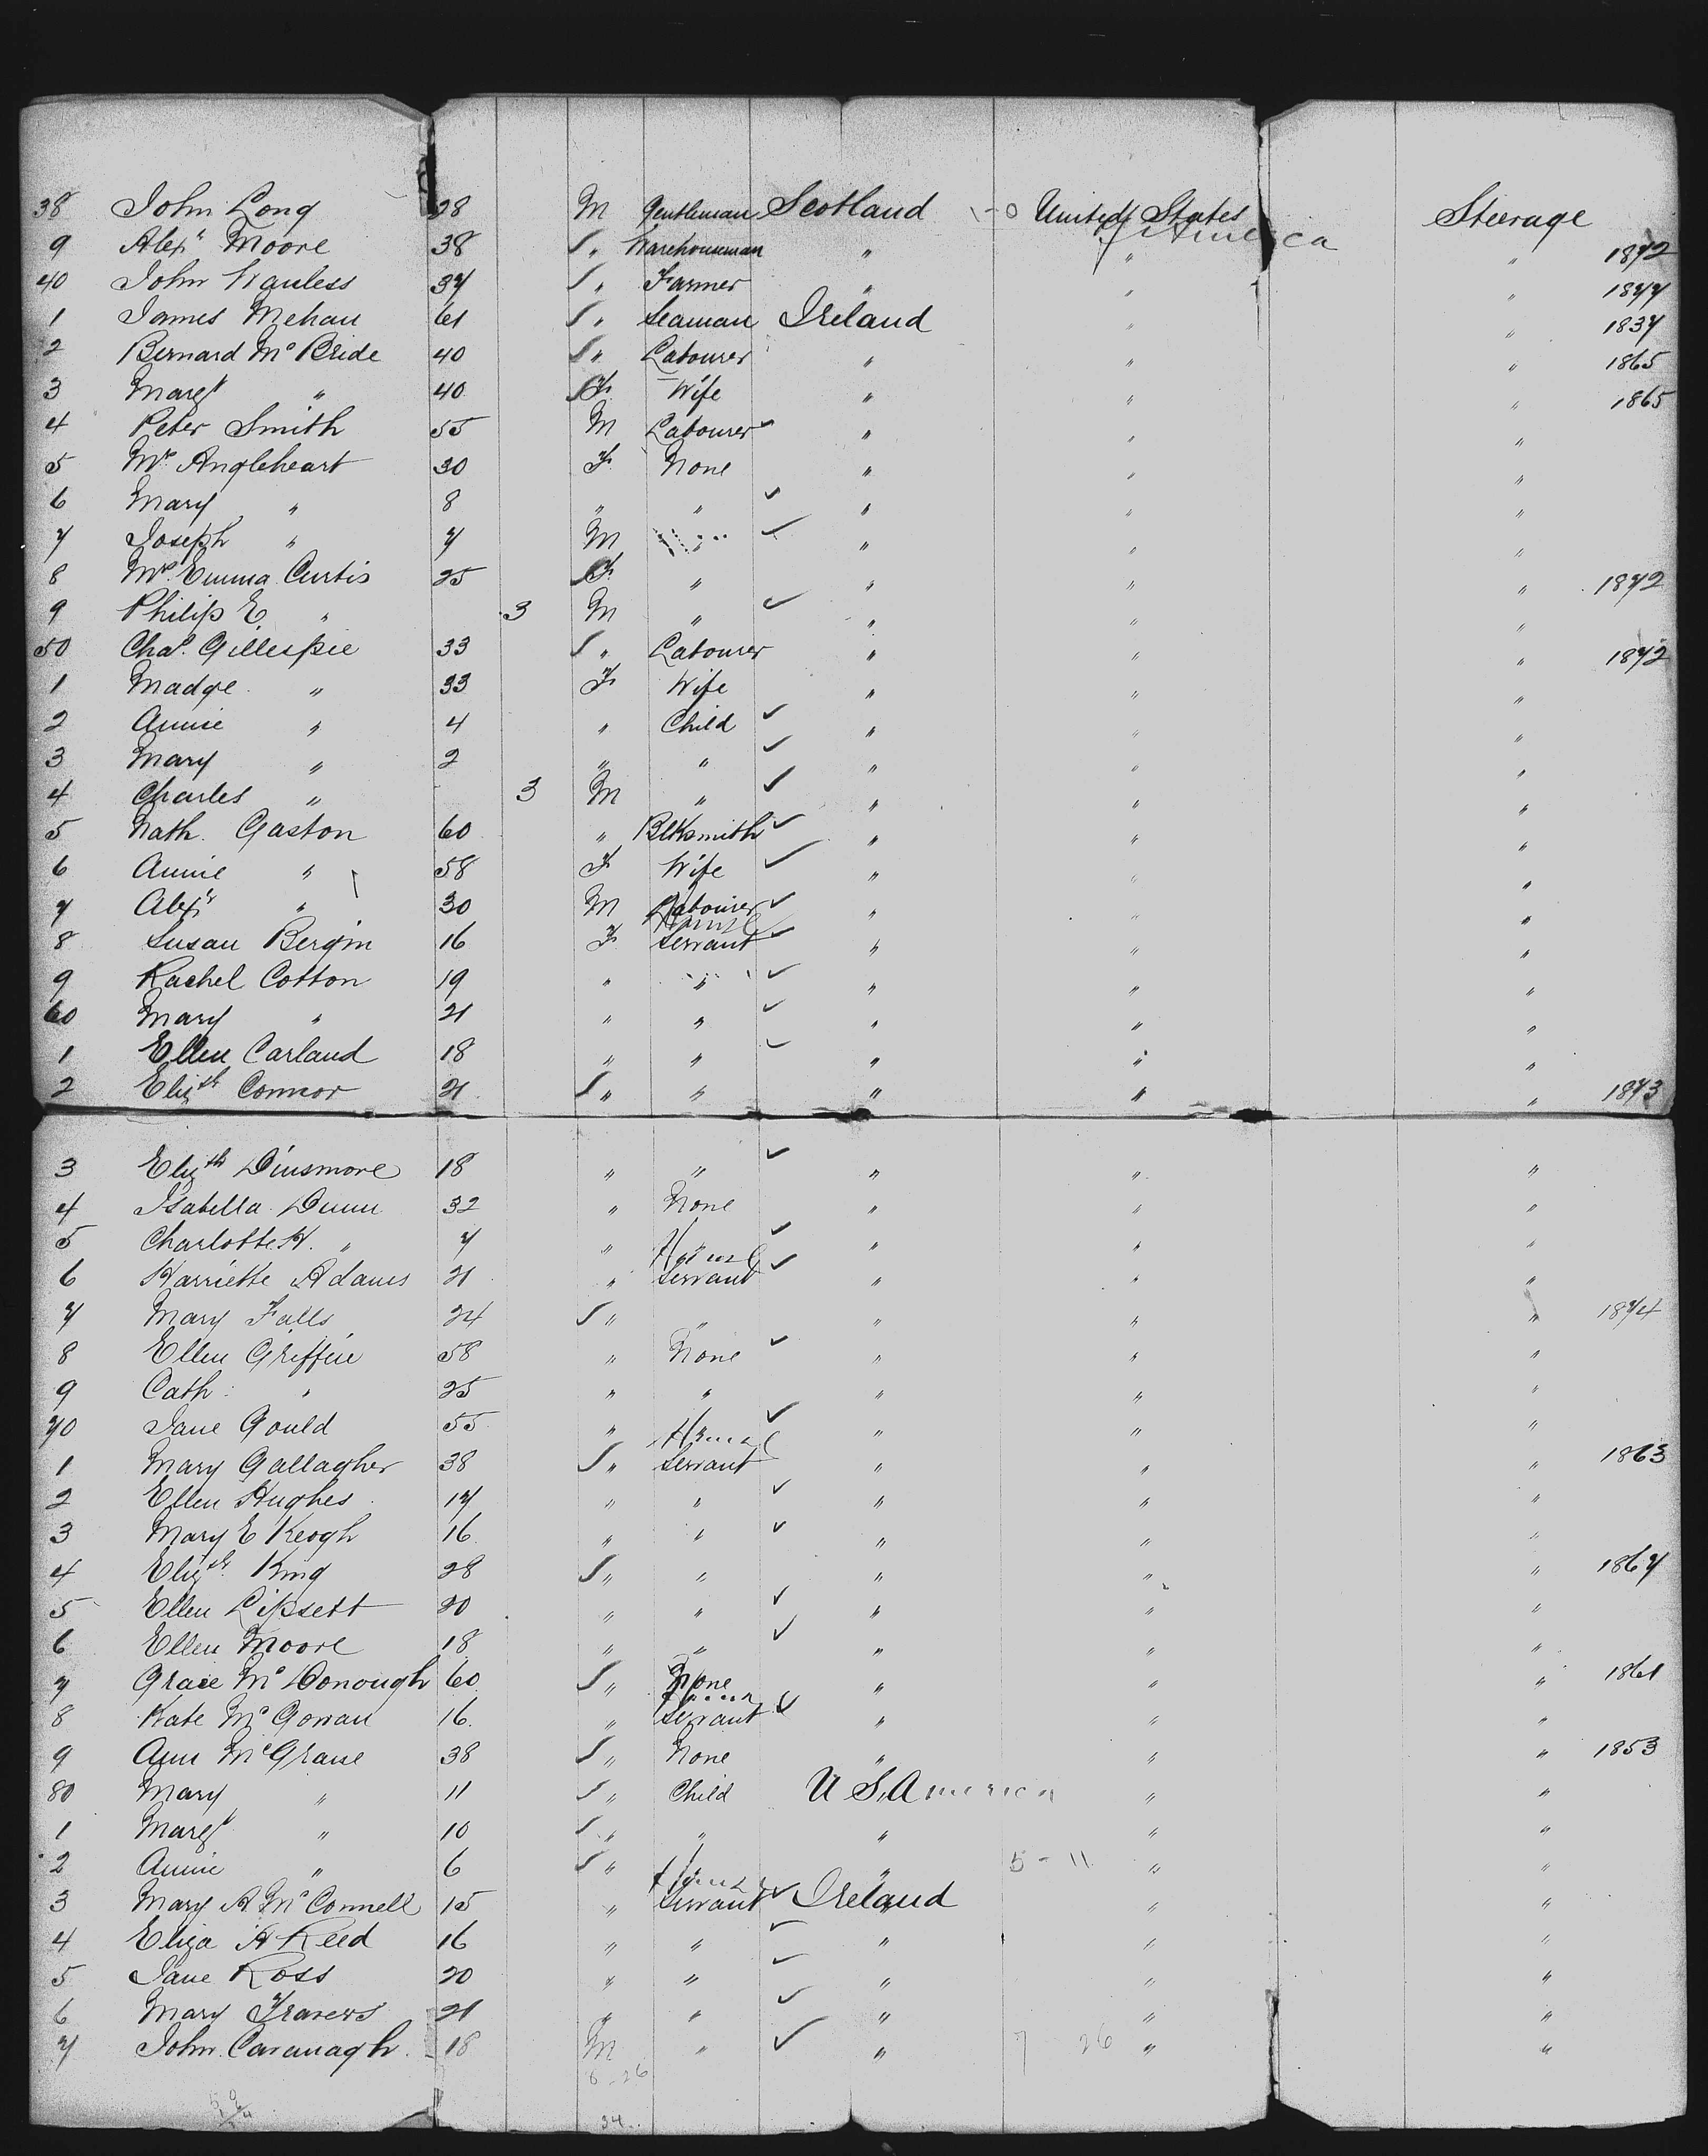 38 John Long 28 M Gentleman Scotland United States of America Steerage
9 Alexr Moore 38 " Warehouseman " " " 1872
40 John Wanless 37 " Farmer " " " 1877
1 James Mehan 61 " Seaman Ireland " " 1837
2 Bernard McBride 40 " Labourer " " " 1865
3 Margt " 40 F Wife " " " 1865
4 Peter Smith 55 M Labourer " " "
5 Mrs Angleheart 30 F None " " "
6 Mary " 8 " " " " "
7 Joseph " 7 M " " " "
8 Mrs Emma Curtis 25 F " " " " 1872
9 Philip E " 3 M " " " "
50 Chas. Gillespie 33 " Labourer " " " 1872
1 Madge " 33 F Wife " " "
2 Annie " 4 " Child " " "
3 Mary " 2 " " " " "
4 Charles " 3 M " " " "
5 Nath. Gaston 60 " Blksmith " " "
6 Annie " 58 F Wife " " "
7 Alexr " 30 M Labourer " " "
8 Susan Bergin 16 F House Servant " " "
9 Rachel Cotton 19 " " " " "
60 Mary " 21 " " " " "
1 Ellen Carland 18 " " " " "
2 Elizth Connor 21 " " " " " 1873
3 Elizth Dinsmore 18 " " " " "
4 Isabella Dunn 32 " None " " "
5 Charlotte H. " 7 " " " " "
6 Harriette Adams 21 " House Servant " " "
7 Mary Falls 24 " " " " " 1874
8 Ellen Griffin 58 " None " " "
9 Cath: " 25 " " " " "
70 Jane Gould 55 " " " "
1 Mary Gallagher 38 " House Servant " " " 1863
2 Ellen Hughes 17 " " " " "
3 Mary E Keogh 16 " " " " "
4 Elizth King 28 " " " " " 1867
5 Ellen Lipsett 20 " " " " "
6 Ellen Moore 18 " " " " "
7 Grace McDonough 60 " None " " " 1861
8 Kate McGowan 16 " House Servant " " "
9 Ann McGrane 38 " None " " " 1853
80 Mary " 11 " Child U S America " "
1 Margt " 10 " " " " "
2 Annie " 6 " " 5 - 11 " "
3 Mary A McConnell 15 " House Servant Ireland " "
4 Eliza A Reed 16 " " " " "
5 Jane Ross 20 " " " " "
6 Mary Travers 21 " " " " "
7 John Cavanagh 18 M " " 7 26 " "
6 - 26
34